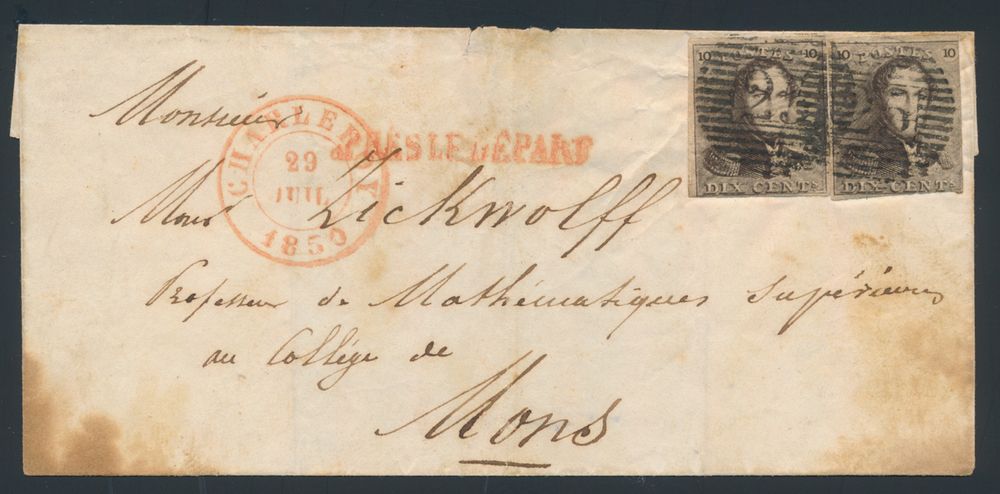 10 POSTES 10
DIX CENTS
10 POSTES 10
DIX-CENTS
Monsieur
CHARLEROY
29
JUIL
1850
APRÈS LE DÉPART
Monsr Zickwolff
Professeur de Mathématiques Supérieures
au Collége de
Mons